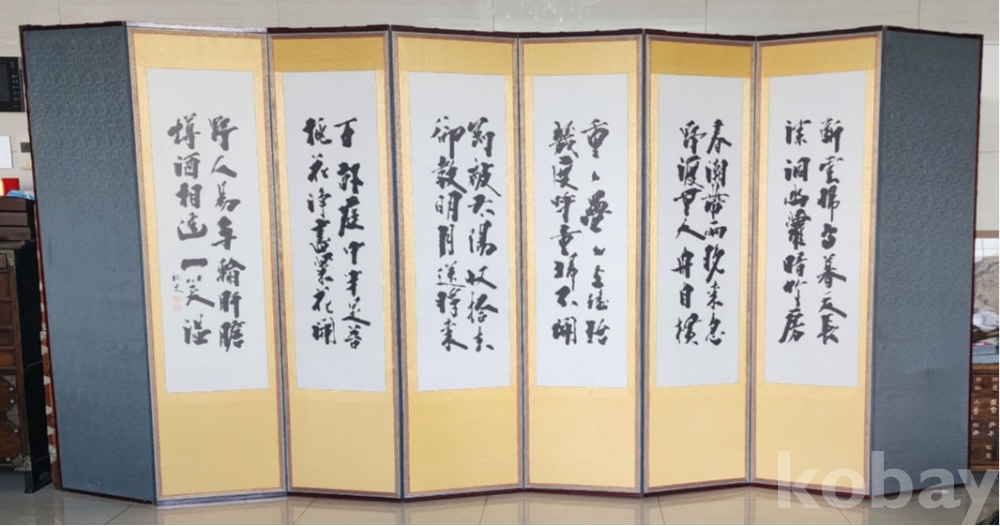 斷雲歸鳥暮天長
深洞幽蘿暗竹房
春潮帶雨晚來急
野渡無人舟自橫
重〻疊〻上瑤臺
幾度呼童掃不開
剛被太陽收拾去
却敎明月送將來
百畝庭中半是苔
桃花淨盡菜花開
野人易與輸肝膽
樽酒相逢一笑溫
kobay